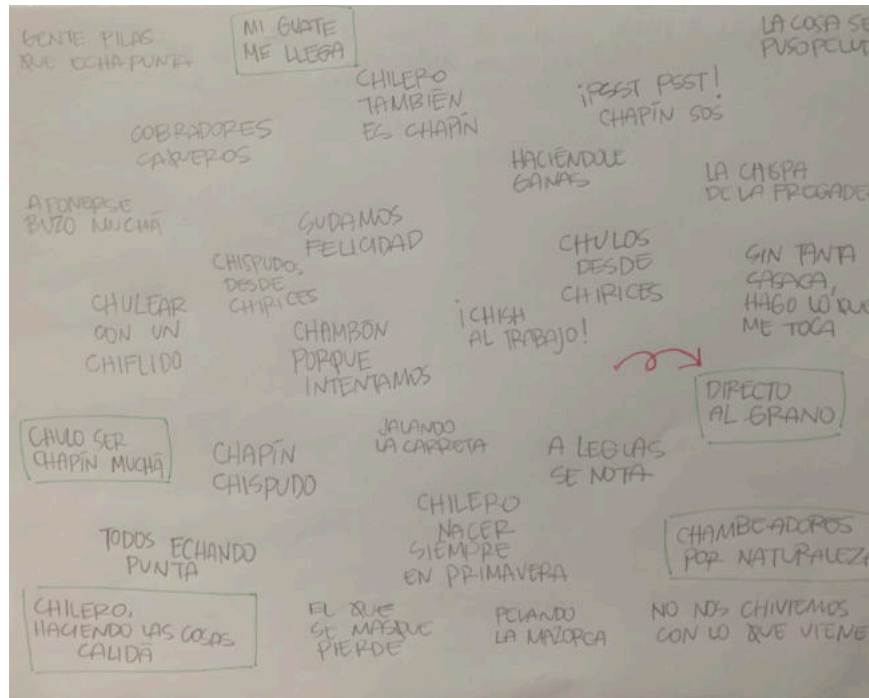 GENTE PILAS
QUE ECHA PUNTA
MI GUATE
ME LLEGA
LA COSA SE
PUSO PELUD
CHILERO
TAMBIÉN
ES CHAPÍN
¡PSST PSST!
CHAPÍN SOS
COBRADORES
CAQUEROS
HACIÉNDOLE
GANAS
LA CHISPA
DE LA FREGADE
A PONERSE
BUZO MUCHÁ
SUDAMOS
FELICIDAD
CHISPUDOS
DESDE
CHIRICES
CHULOS
DESDE
CHIRICES
SIN TANTA
CASACA,
HAGO LO QUE
ME TOCA
CHULEAR
CON UN
CHIFLIDO
CHAMBÓN
PORQUE
INTENTAMOS
¡CHISH
AL TRABAJO!
DIRECTO
AL GRANO
CHULO SER
CHAPÍN MUCHÁ
CHAPÍN
CHISPUDO
JALANDO
LA CARRETA
A LEGUAS
SE NOTA
CHILERO
NACER
SIEMPRE
EN PRIMAVERA
TODOS ECHANDO
PUNTA
CHAMBEADORES
POR NATURALEZA
CHILERO,
HACIENDO LAS COSAS
CALIDÁ
EL QUE
SE MASQUE
PIERDE
PELANDO
LA MAZORCA
NO NOS CHIVIEMOS
CON LO QUE VIENE